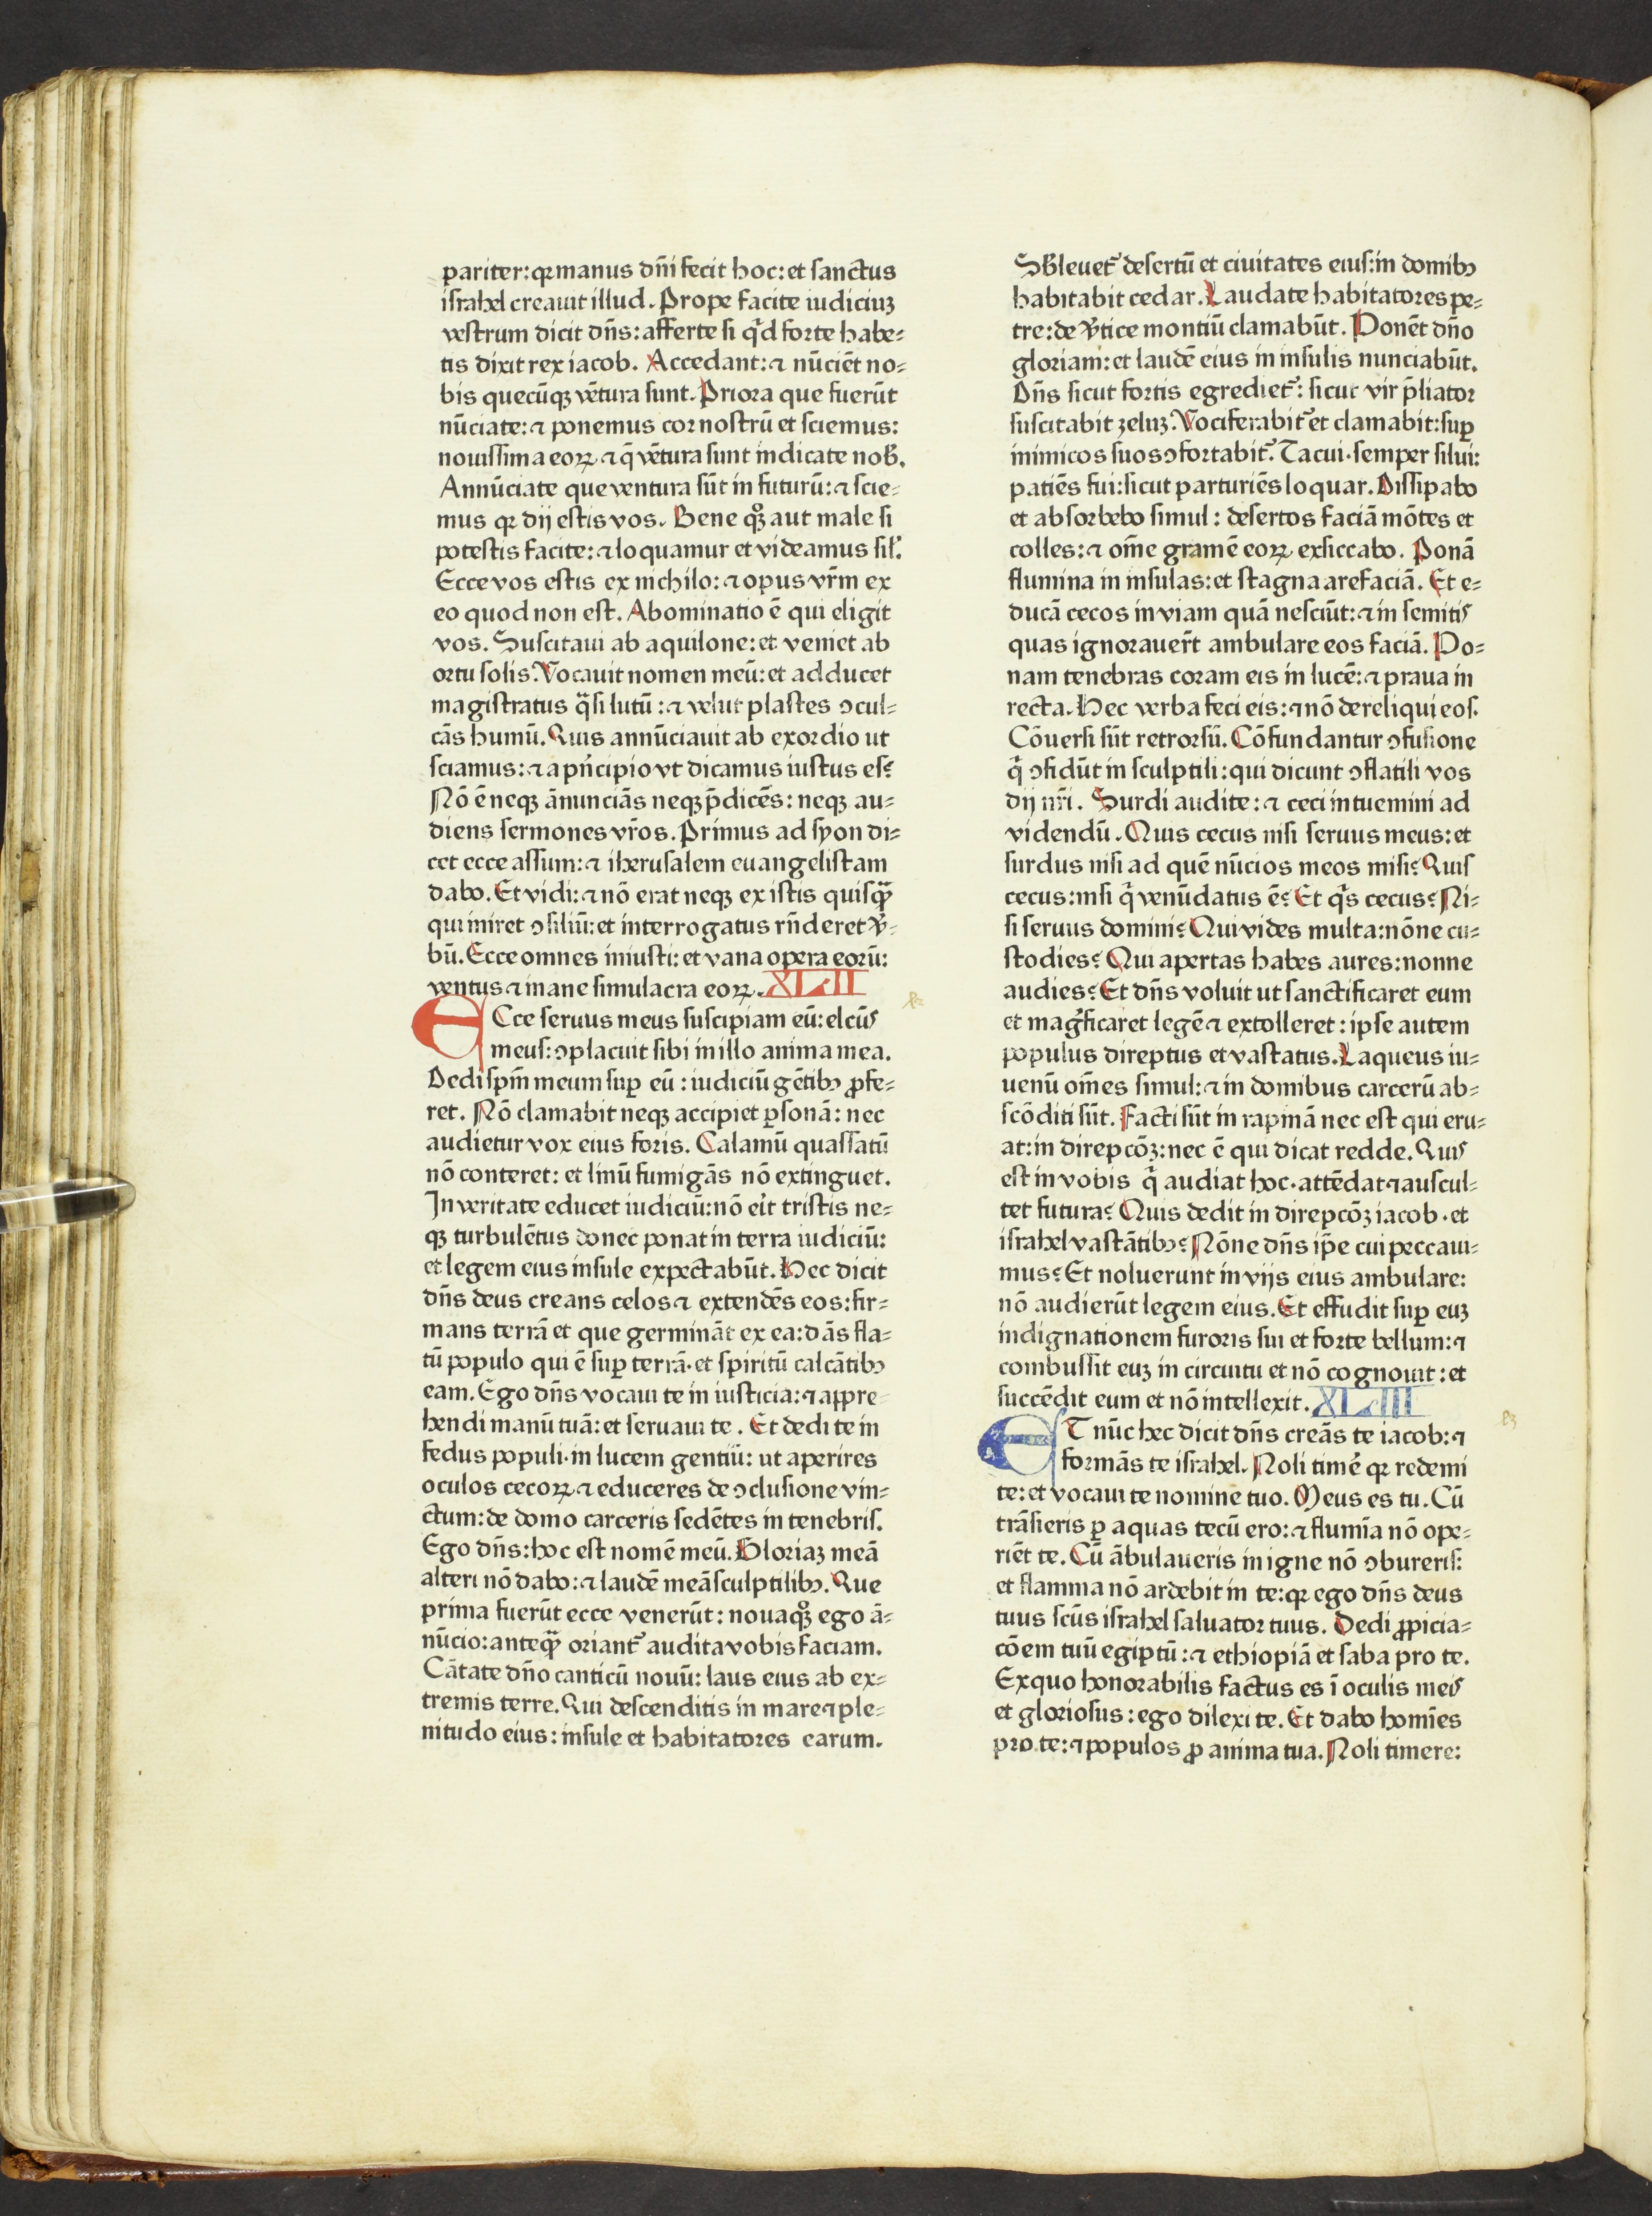 pariter: qꝛ manus dn̄i fecit hoc: et sanctus
israhel creauit illud. Prope facite iudiciuꝫ
vestrum dicit dn̄s: afferte si qͥd forte habe⸗
tis dixit rex iacob. Accedant: ⁊ nūciēt no⸗
bis quecūqꝫ vētura sunt. Priora que fuerūt
nūciate: ⁊ ponemus cor nostrū et sciemus:
nouissima eoꝝ ⁊ q̄ vētura sunt indicate nob̄.
Annūciate que ventura sūt in futurū: ⁊ scie⸗
mus qꝛ dij estis vos. Bene qͦꝫ aut male si
potestis facite: ⁊ loquamur et videamus sil̓.
Ecce vos estis ex nichilo: ⁊ opus vr̄m ex
eo quod non est. Abominatio ē qui eligit
vos. Suscitaui ab aquilone: et veniet ab
ortu solis. Vocauit nomen meū: et adducet
magistratus qͣsi lutū: ⁊ velut plastes ↄcul⸗
cās humū. Quis annūciauit ab exordio ut
sciamus: ⁊ a pn̄cipio vt dicamus iustus es?
Nō ē neqꝫ ānunciās neqꝫ p̄dicēs: neqꝫ au⸗
diens sermones vr̄os. Primus ad syon di⸗
cet ecce assum: ⁊ iherusalem euangelistam
dabo. Et vidi: ⁊ nō erat neqꝫ ex istis quisqͣꝫ
qui iniret ↄsiliū: et interrogatus rn̄deret v̓⸗
bū. Ecce omnes iniusti: et vana opera eorū:
ventus ⁊ inane simulacra eoꝝ. XLII
ECce seruus meus suscipiam eū: elcūs
meus: ↄplacuit sibi in illo anima mea.
Dedi spm̄ meum suꝑ eū: iudiciū gētibꝰ ꝓfe⸗
ret. Nō clamabit neqꝫ accipiet ꝑsonā: nec
audietur vox eius foris. Calamū quassatū
nō conteret: et linū fumigās nō extinguet.
In veritate educet iudiciū: nō eīt tristis ne⸗
qꝫ turbulētus donec ponat in terra iudiciū:
et legem eius insule expectabūt. Hec dicit
dn̄s deus creans celos ⁊ extendēs eos: fir⸗
mans terrā et que germināt ex ea: dās fla⸗
tū populo qui ē suꝑ terrā. et spiritū calcātibꝰ
eam. Ego dn̄s vocaui te in iusticia: ⁊ appre⸗
hendi manū tuā: et seruaui te. Et dedi te in
fedus populi. in lucem gentiū: ut aperires
oculos cecoꝝ ⁊ educeres de ↄclusione vin⸗
ctum: de domo carceris sedētes in tenebris.
Ego dn̄s: hoc est nomē meū. Gloriaꝫ meā
alteri nō dabo: ⁊ laudē meā sculptilibꝰ. Que
prima fuerūt ecce venerūt: noua qͦꝫ ego ā⸗
nūcio: anteqͣꝫ oriant᷑ audita vobis faciam.
Cātate dn̄o canticū nouū: laus eius ab ex⸗
tremis terre. Qui descenditis in mare ⁊ ple⸗
nitudo eius: insule et habitatores earum.
Sb̄leuet᷑ desertū et ciuitates eius: in domibꝰ
habitabit cedar. Laudate habitatores pe⸗
tre: de v̓tice montiū clamabūt. Ponēt dn̄o
gloriam: et laudē eius in insulis nunciabūt.
Dn̄s sicut fortis egrediet᷑: sicut vir p̄liator
suscitabit zeluꝫ. Vociferabit᷑ et clamabit: suꝑ
inimicos suos ↄfortabit᷑. Tacui. semper silui:
patiēs fui: sicut parturiēs loquar. Dissipabo
et absorbebo simul: desertos faciā mōtes et
colles: ⁊ om̄e gramē eoꝝ exsiccabo. Ponā
flumina in insulas: et stagna arefaciā. Et e⸗
ducā cecos in viam quā nesciūt: ⁊ in semitis
quas ignorauer̄t ambulare eos faciā. Po⸗
nam tenebras coram eis in lucē: ⁊ praua in
recta. Hec verba feci eis: ⁊ nō dereliqui eos.
Cōuersi sūt retrorsū. Cōfundantur ↄfusione
qͥ ↄfidūt in sculptili: qui dicunt ↄflatili vos
dij nr̄i. Surdi audite: ⁊ ceci intuemini ad
videndū. Quis cecus nisi seruus meus: et
surdus nisi ad quē nūcios meos misi? Quis
cecus: nisi qͥ venūdatus ē? Et qͥs cecus? Ni⸗
si seruus domini? Qui vides multa: nōne cu⸗
stodies? Qui apertas habes aures: nonne
audies? Et dn̄s voluit ut sanctificaret eum
et magͥficaret legē ⁊ extolleret: ipse autem
populus direptus et vastatus. Laqueus iu⸗
uenū om̄es simul: ⁊ in domibus carcerū ab⸗
scōditi sūt. Facti sūt in rapinā nec est qui eru⸗
at: in direpcōꝫ: nec ē qui dicat redde. Quis
est in vobis qͥ audiat hoc. attēdat ⁊ auscul⸗
tet futura? Quis dedit in direpcōꝫ iacob. et
israhel vastātibꝰ? Nōne dn̄s ip̄e cui peccaui⸗
mus? Et noluerunt in vijs eius ambulare:
nō audierūt legem eius. Et effudit suꝑ euꝫ
indignationem furoris sui et forte bellum: ⁊
combussit euꝫ in circuitu et nō cognouit: et
succēdit eum et nō intellexit. XLIII
ET nūc hec dicit dn̄s creās te iacob: ⁊
formās te israhel. Noli timē qꝛ redemi
te: et vocaui te nomine tuo. Meus es tu. Cū
trāsieris ꝑ aquas tecū ero: ⁊ flumīa nō ope⸗
riēt te. Cū ābulaueris in igne nō ↄbureris:
et flamma nō ardebit in te: qꝛ ego dn̄s deus
tuus scūs israhel saluator tuus. Dedi ꝓpicia⸗
cōem tuū egiptū: ⁊ ethiopiā et saba pro te.
Exquo honorabilis factus es ī oculis meis
et gloriosus: ego dilexi te. Et dabo homīes
pro te: ⁊ populos ꝓ anima tua. Noli timere: